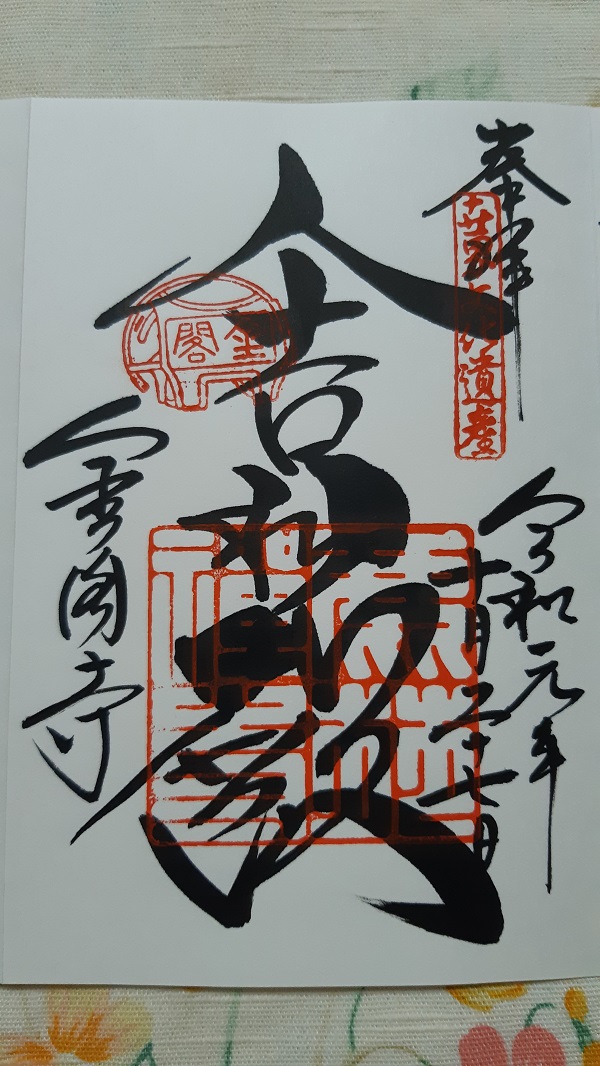 奉拝
世界文化遺産
令和元年
十月二十七日
舎利殿
金閣
金閣寺